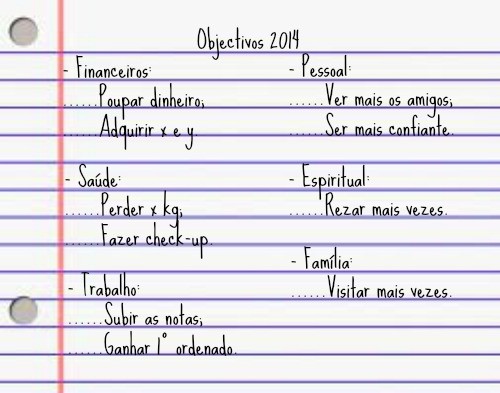 Objectivos 2014
- Financeiros:
......Poupar dinheiro;
......Adquirir x e y.
- Saúde:
......Perder x kg;
......Fazer check-up.
- Trabalho:
......Subir as notas;
......Ganhar 1º ordenado.
- Pessoal:
......Ver mais os amigos;
......Ser mais confiante.
- Espiritual:
......Rezar mais vezes.
- Família:
......Visitar mais vezes.